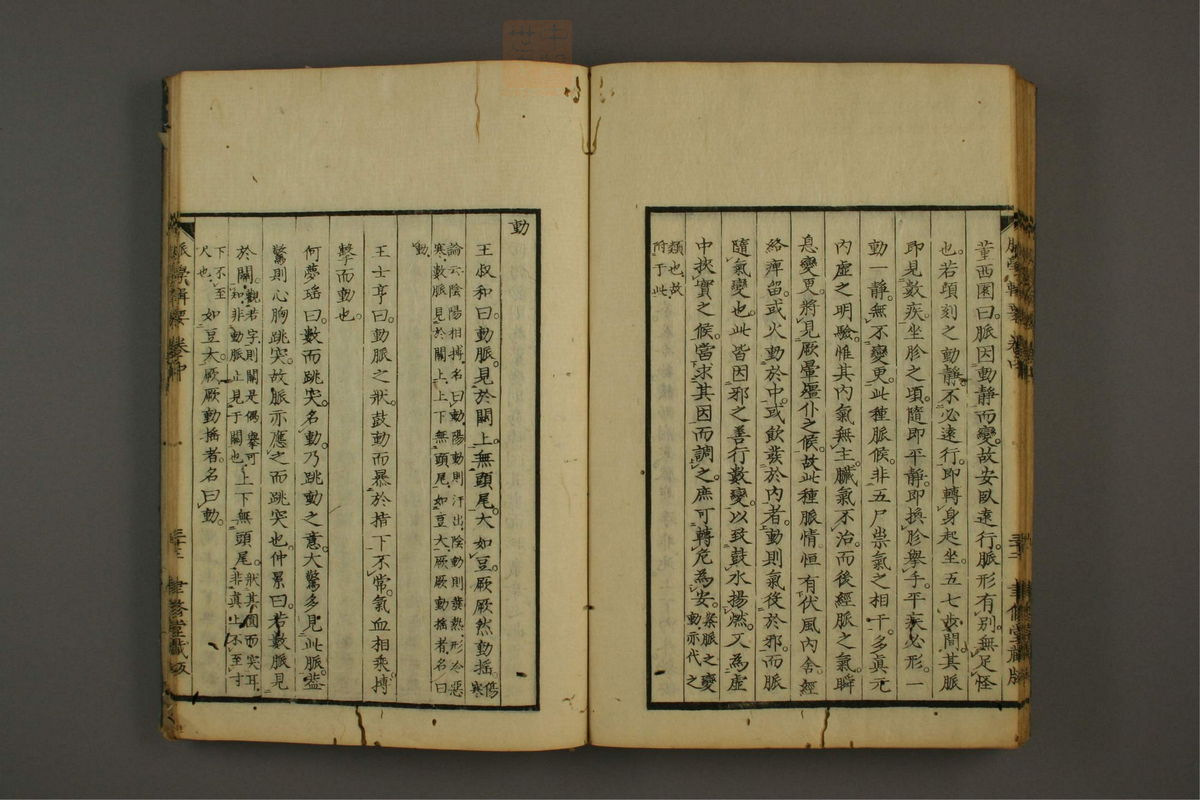 董西園曰。脈因動靜而變。故安臥遠行。脈形有別。無足怪
也。若頃刻之動靜。不必遠行。即轉身起坐。五七步間。其脈
即見數疾。坐診之頃。隨即平靜。即換診舉手。平疾必形。一
動一靜。無不變更。此種脈候。非五尸祟氣之相干。多真元
內虛之明驗。惟其內氣無主。臟氣不治。而後經脈之氣。瞬
息變更。將見厥暈殭仆之候。故此種脈情。恒有伏風內舍。經
絡痺留。或火動於中。或飲發於內者。動則氣役於邪。而脈
隨氣變也。此皆因邪之善行數變。以致鼓水揚燃。又為虛
中挾實之候。當求其因而調之。庶可轉危為安。案脈之變動亦代之
類也。故附于此
動
王叔和曰。動脈。見於關上。無頭尾。大如豆。厥厥然動搖。傷寒
論云。陰陽相搏。名曰動。陽動則汗出。陰動則發熱。形冷惡
寒。數脈見於關上。上下無頭尾。如豆大。厥厥動搖者。名曰
動。
王士亨曰。動脈之狀。鼓動而暴於指下不常。氣血相乘。搏
擊而動也。
何夢瑤曰。數而跳突。名動。乃跳動之意。大驚多見此脈。蓋
驚則心胸跳突。故脈亦應之而跳突也。仲景曰。若數脈見
於關。觀若字。則關是偶舉可知。非動脈止見于關也。上下無頭尾。狀其圓而突耳。非真上不至寸
下不至尺也。如豆大。厥厥動搖者。名曰動。
脈學輯要 卷中 三十二 聿修堂藏版
脈學輯要 卷中 三十三 聿修堂藏版